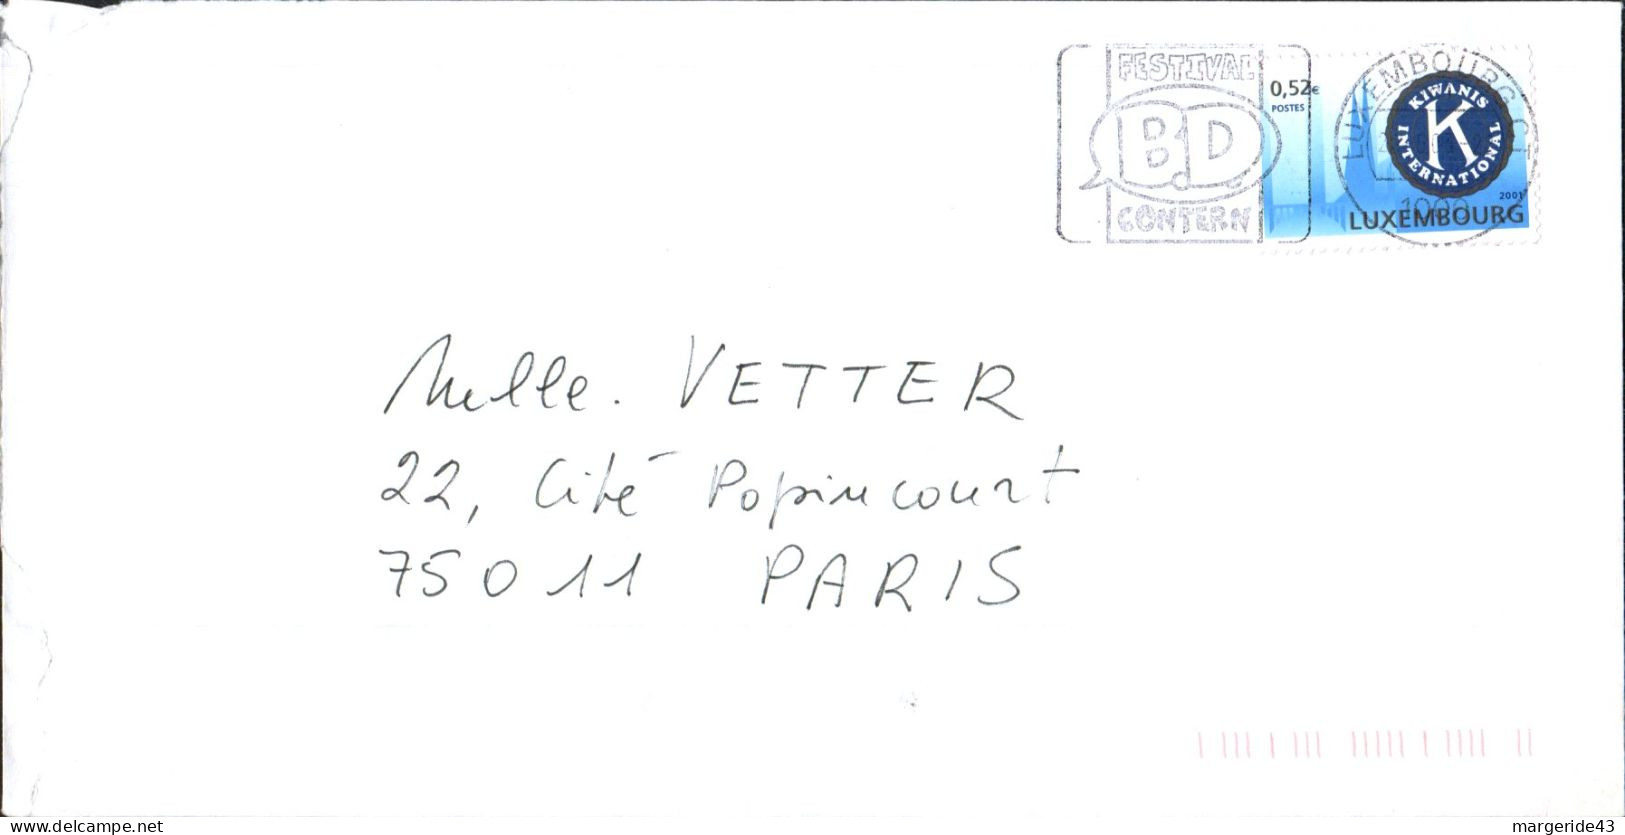 FESTIVAL
B.D.
CONTERN
0,52€
POSTES
LUXEMBOURG
KIWANIS
K
INTERNATIONAL
2001
LUXEMBOURG
Melle. VETTER
22, Cité Popincourt
75011 PARIS
www.delcampe.net
margeride43